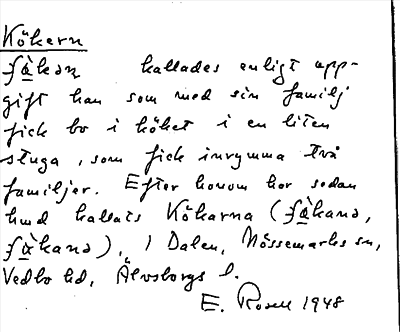 Kökern
fɑ̀kəṇ kallades enligt upp-
gift han som med sin familj
fick bo i köket i en liten
stuga, som fick inrymma två
familjer. Efter honom har sedan
kallats Kökarna (
I Dalen, Nössemarks sn,
Vedbo hd, Älvsborgs l.
E. Rosell 1948